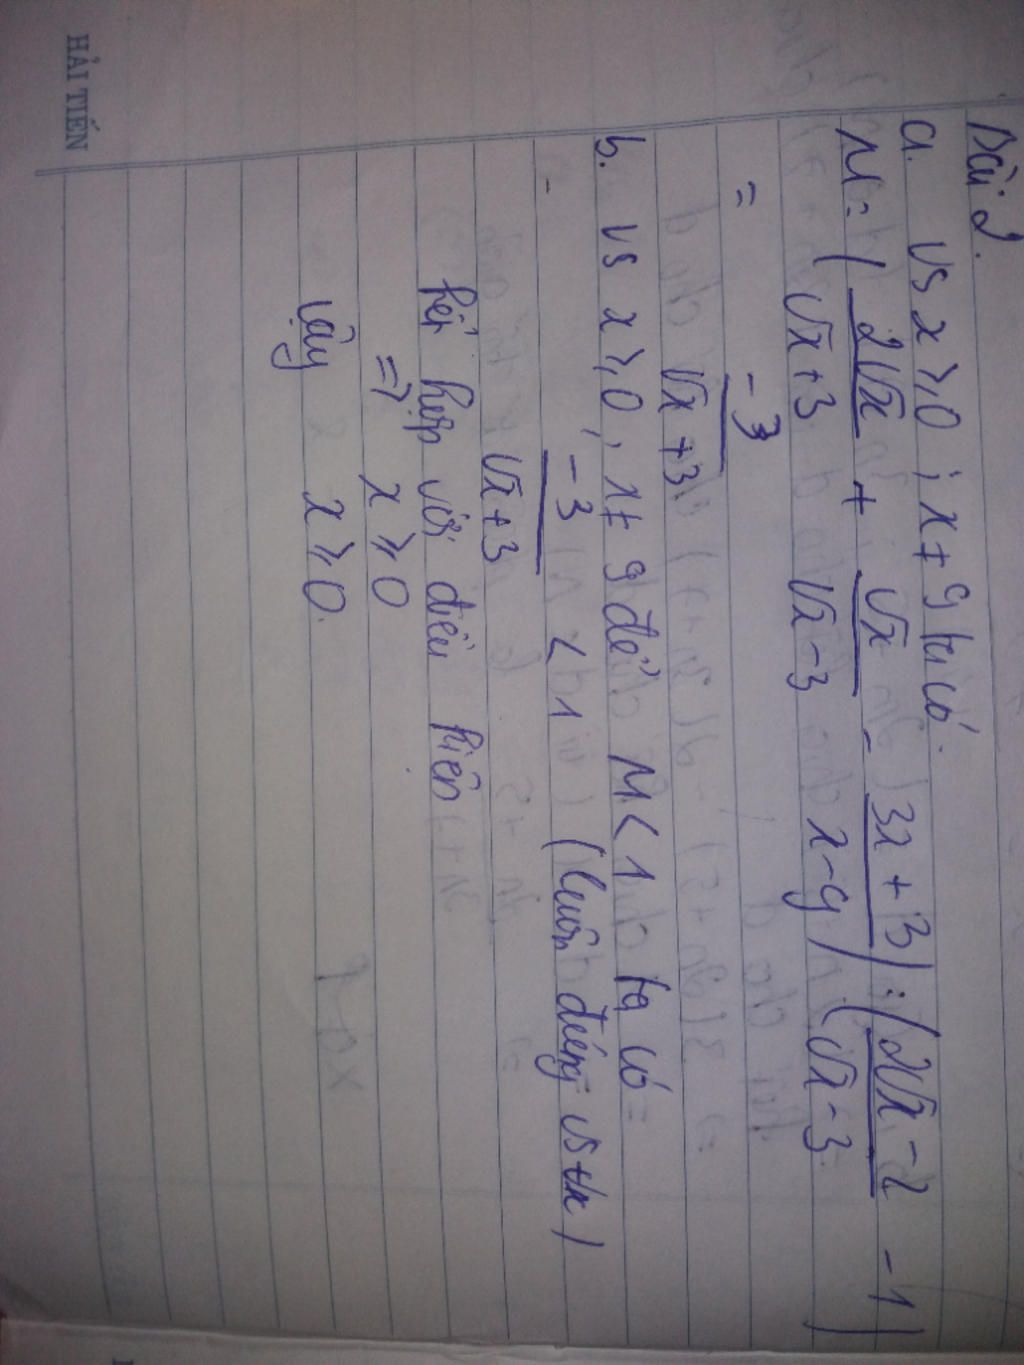 Bài 2.
a. vs x ⩾ 0 ; x ≠ 9 ta có.
M = ( 2√x / √x + 3 + √x / √x - 3 - 3x + 3 / x - 9 ) : ( 2√x - 2 / √x - 3 - 1 )
= -3 / √x + 3
b. vs x ⩾ 0, x ≠ 9 để M < 1 ta có =
-3 / √x + 3 < 1 (luôn đúng vs +x)
kết hợp với điều kiện
=> x ⩾ 0
vậy x ⩾ 0.
HẢI TIẾN